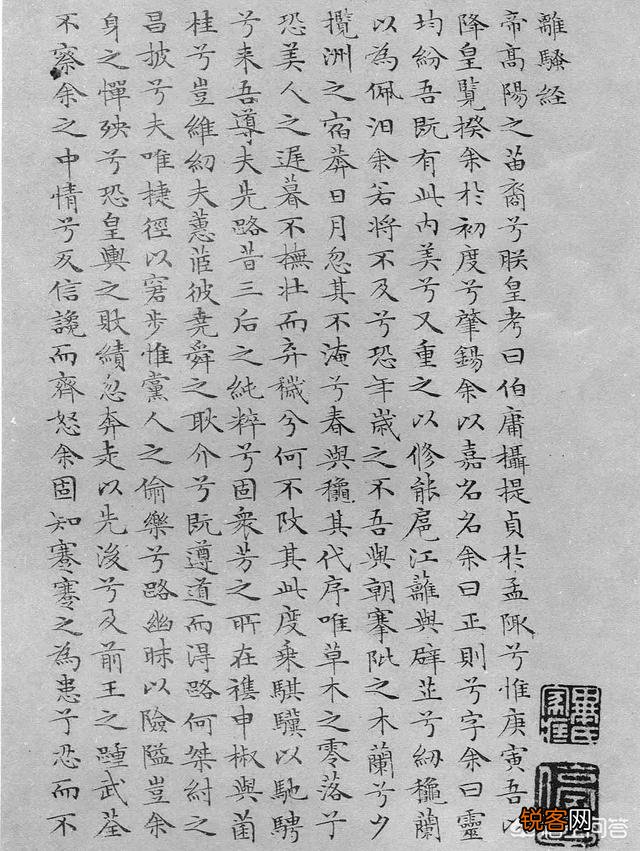 離騷経
帝高陽之苗裔兮朕皇考曰伯庸攝提貞於孟陬兮惟庚寅吾以
降皇覽揆余於初度兮肇錫余以嘉名名余曰正則兮字余曰靈
均紛吾既有此内美兮又重之以修能扈江蘺與辟芷兮紉龝蘭
以為佩汨余若將不及兮恐年歲之不吾與朝搴阰之木蘭兮夕
攬洲之宿莽日月忽其不淹兮春與龝其代序唯草木之零落兮
恐美人之遲暮不撫壯而弃穢兮何不改其此度乘騏驥以馳騁
兮来吾導夫先路昔三后之純粹兮固衆芳之所在襍申椒與菌
桂兮豈維紉夫蕙茝彼堯舜之耿介兮既遵道而得路何桀紂之
昌披兮夫唯捷徑以窘步惟黨人之偷樂兮路幽昧以險隘豈余
身之憚殃兮恐皇輿之敗績忽奔走以先後兮及前王之踵武荃
不察余之中情兮反信讒而齊怒余固知謇謇之為患兮忍而不
锐客网
问答